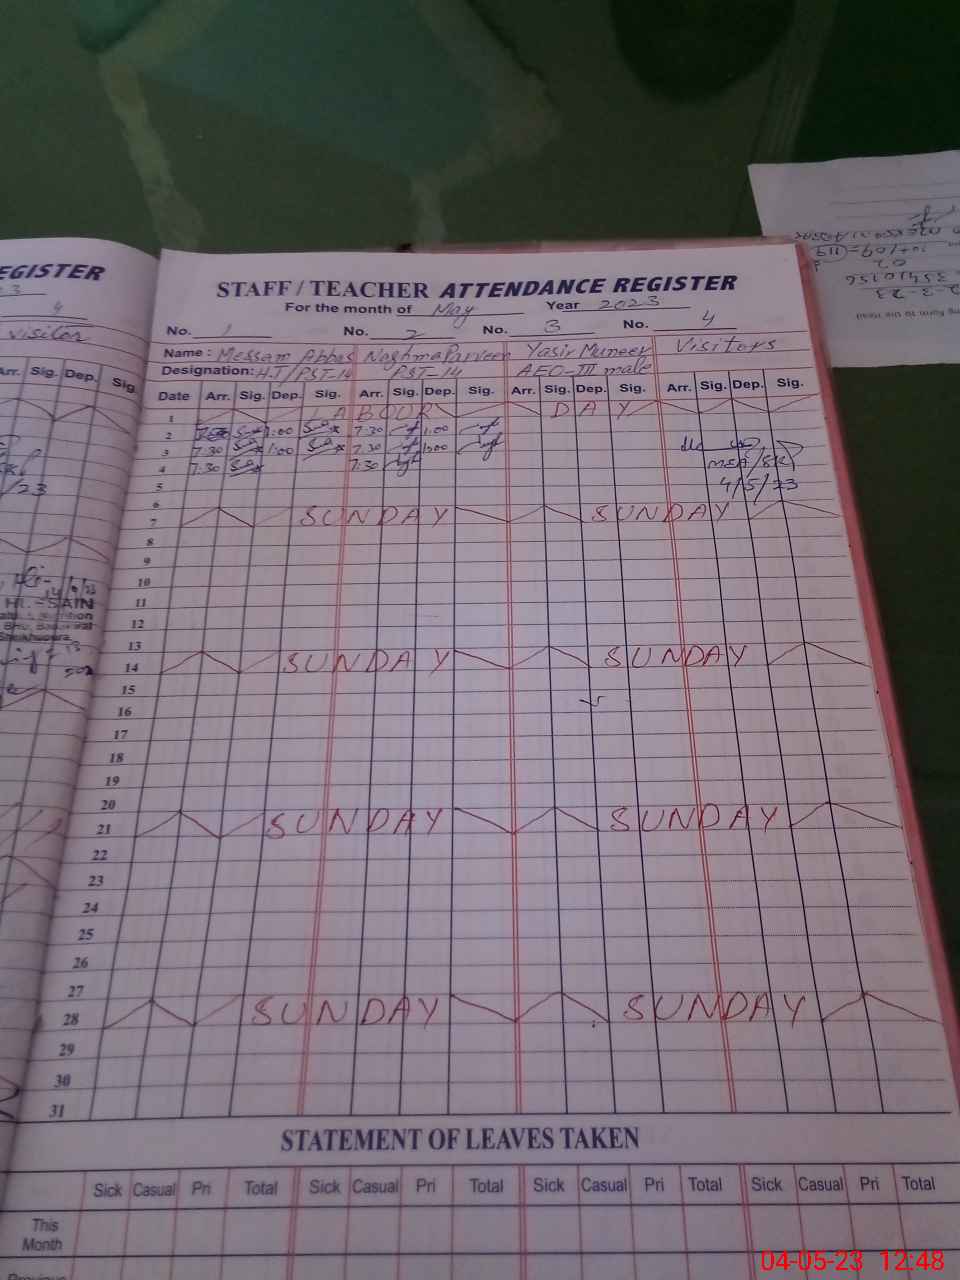 EGISTER
4
visitor
Arr. Sig. Dep. Sig.
STAFF / TEACHER ATTENDANCE REGISTER
For the month of May Year 2023
No. 1 No. 2 No. 3 No. 4
Name : Messam Abbas Naghma Parveen Yasir Muneer Visitors
Designation: H.T/PST-14 PST-14 AEO-III male
Date Arr. Sig. Dep. Sig. Arr. Sig. Dep. Sig. Arr. Sig. Dep. Sig. Arr. Sig. Dep. Sig.
1 LABOUR DAY
2 1:00 7:30 1:00
3 7:30 1:00 7:30 1:00
4 7:30 7:30
5 4/5/23
6
7 SUNDAY SUNDAY
8
9
10
11
12
13
14 SUNDAY SUNDAY
15
16
17
18
19
20
21 SUNDAY SUNDAY
22
23
24
25
26
27
28 SUNDAY SUNDAY
29
30
31
STATEMENT OF LEAVES TAKEN
Sick Casual Pri Total Sick Casual Pri Total Sick Casual Pri Total Sick Casual Pri Total
This
Month
Previous
04-05-23 12:48